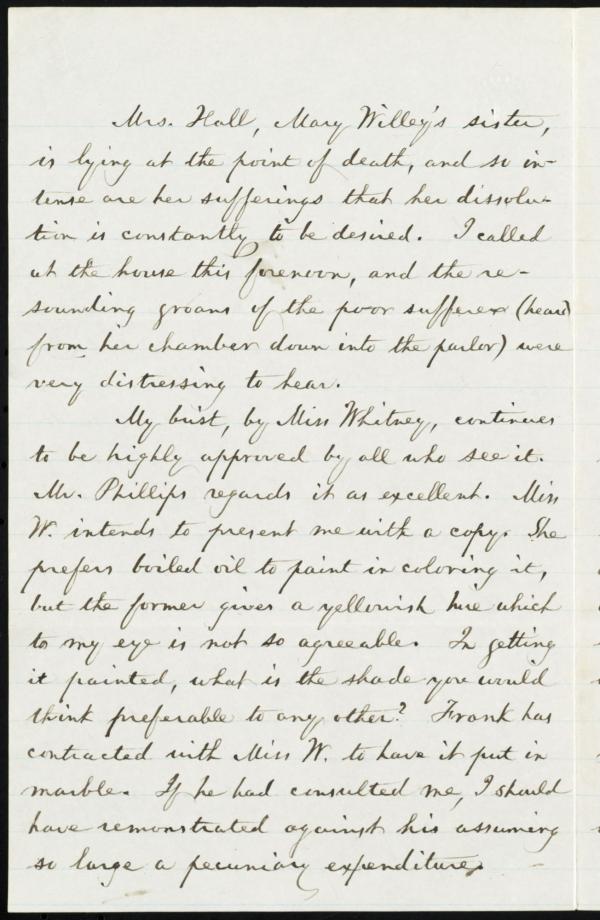 Mrs. Hall, Mary Willey's sister,
is lying at the point of death, and so in-
tense are her sufferings that her dissolu-
tion is constantly to be desired. I called
at the house this forenoon, and the re-
sounding groans of the poor sufferer (heard
from her chamber down into the parlor) were
very distressing to hear.
My bust, by Miss Whitney, continues
to be highly approved by all who see it.
Mr. Phillips regards it as excellent. Miss
W. intends to present me with a copy. She
prefers boiled oil to paint in coloring it,
but the former gives a yellowish hue which
to my eye is not so agreeable. In getting
it painted, what is the shade you would
think preferable to any other? Frank has
contracted with Miss W. to have it put in
marble. If he had consulted me, I should
have remonstrated against his assuming
so large a pecuniary expenditure.